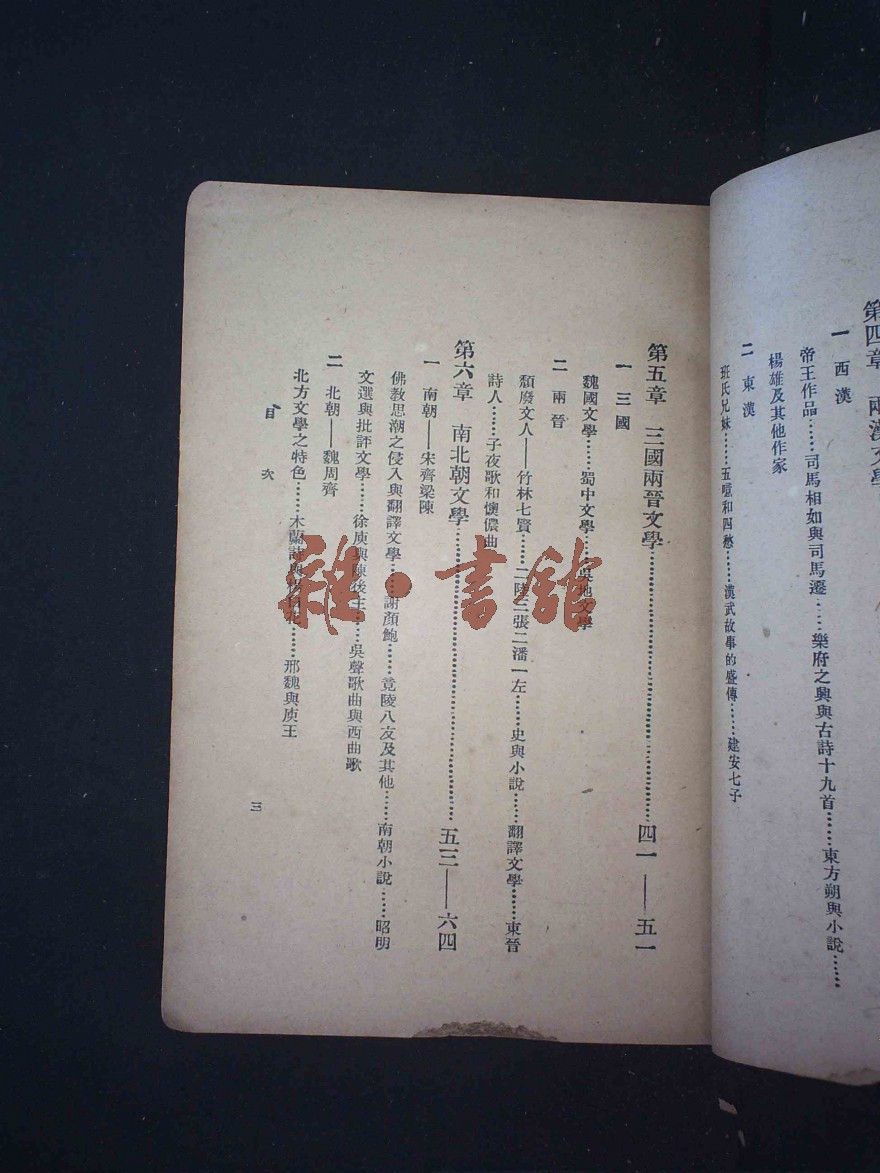 第四章　兩漢文學
一　西漢
帝王作品……司馬相如與司馬遷……樂府之興與古詩十九首……東方朔與小說……
楊雄及其他作家
二　東漢
班氏兄妹……五噫和四愁……漢武故事的盛傳……建安七子
第五章　三國兩晉文學……四一——五一
一　三國
魏國文學……蜀中文學……吳地文學
二　兩晉
頹廢文人——竹林七賢……二陸三張二潘一左……史與小說……翻譯文學……東晉
詩人……子夜歌和懊儂曲
第六章　南北朝文學……五三——六四
一　南朝——宋齊梁陳
佛教思潮之侵入與翻譯文學……謝顏鮑……竟陵八友及其他……南朝小說……昭明
文選與批評文學……徐庾與陳後主……吳聲歌曲與西曲歌
二　北朝——魏周齊
北方文學之特色……木蘭詩與楊白花……邢魏與庾王
目次
三
雜·書館